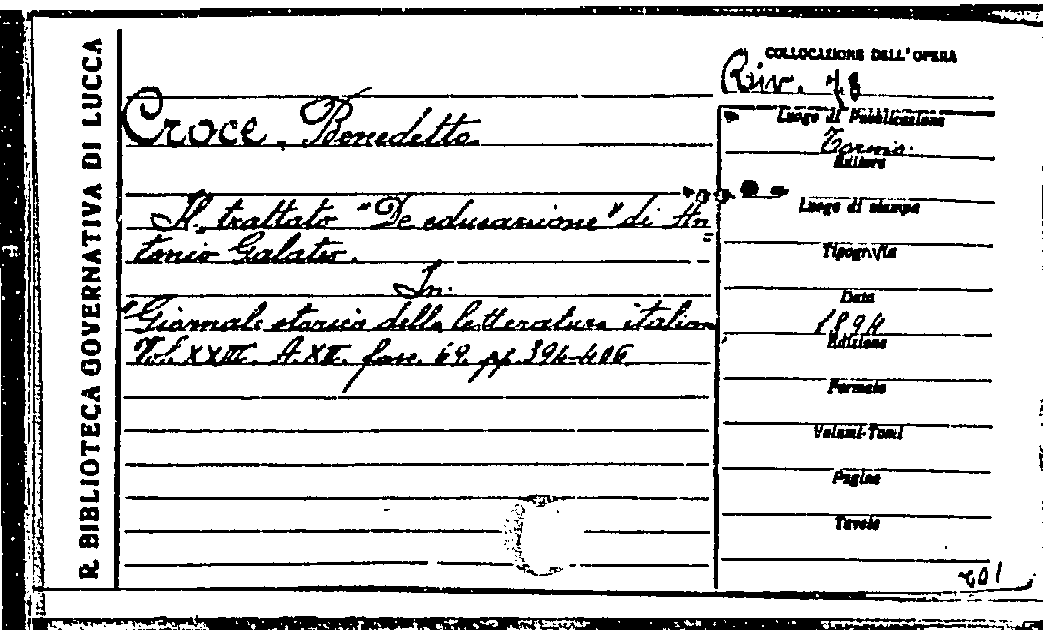 R. BIBLIOTECA GOVERNATIVA DI LUCCA
COLLOCAZIONE DELL'OPERA
Riv. 78
Croce, Benedetto
Il trattato "De educazione" di An=
tonio Galateo.
In:
"Giornale storico della letteratura italian
Vol. XXIII. A. XII. fasc. 69. pp. 394-406.
Luogo di Pubblicazione
Torino.
Editore
Luogo di stampa
Tipografia
Data
1894
Edizione
Formato
Volumi-Tomi
Pagine
Tavole
201